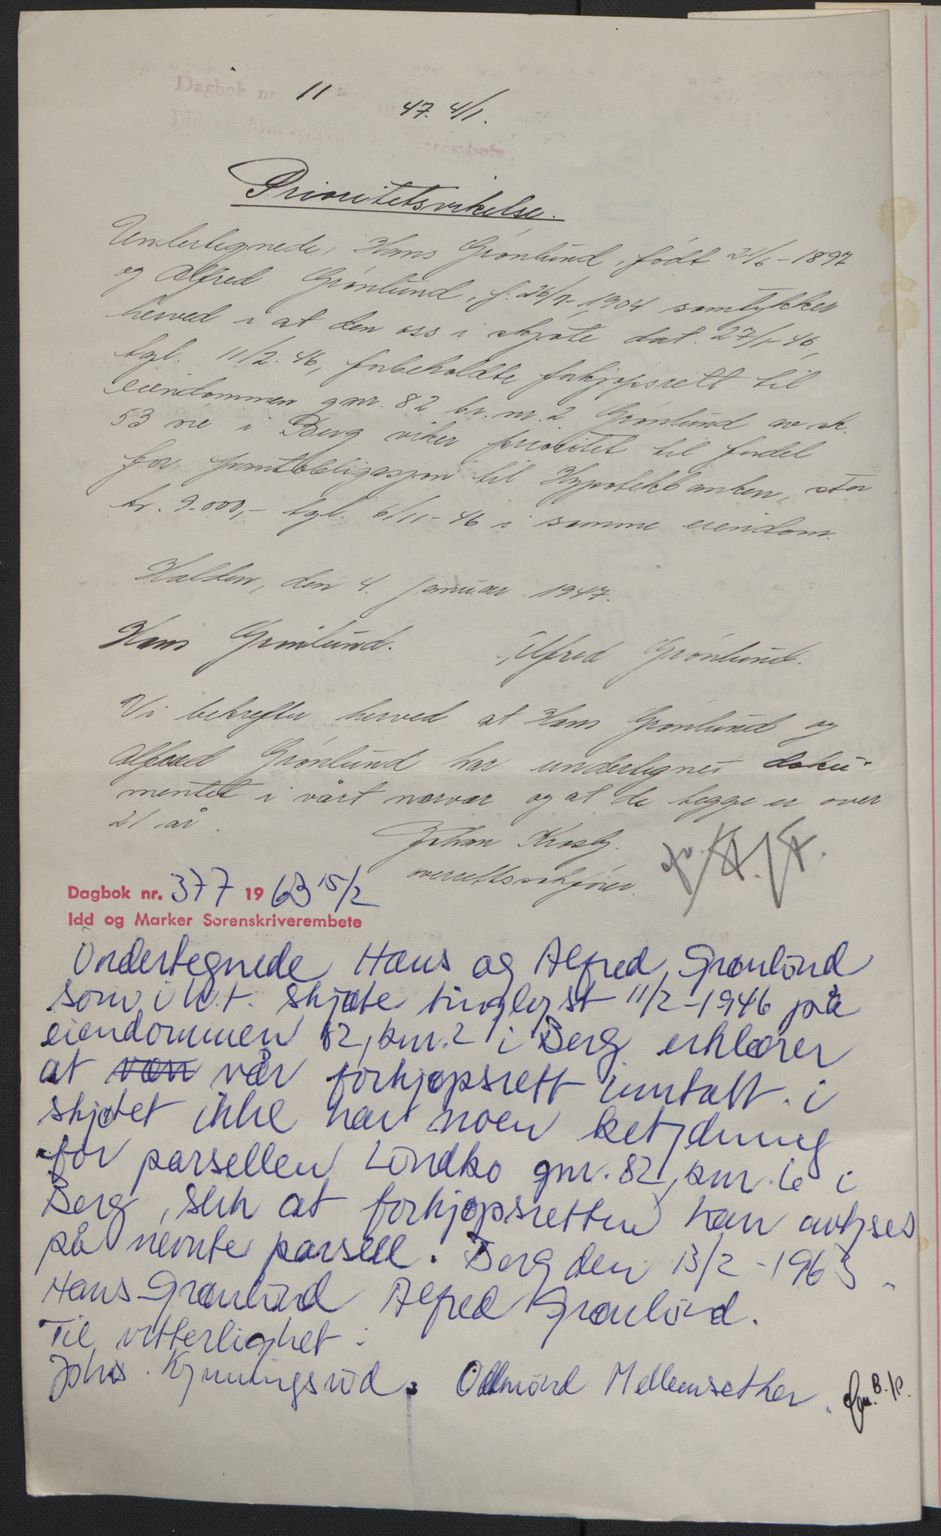 11
47. 4/1.
Prioritetsvikelse.
Undertegnede, Hans Grønlund, født 21/6-1897
og Alfred Grønlund, f. 1904 samtykker
herved i at den oss i skjøte dat. 27/1-46,
tgl. 11/2.46, forbeholdte forkjøpsrett til
eiendommen gnr. 82 br.nr. 2 Grønlund av sk.
53 øre i Berg viker prioritet til fordel
for pantobligasjon til Hypotekbanken, stor
kr. 9.000,- tgl. 6/11-46 i samme eiendom.
Halden, den 4. januar 1947.
Hans Grønlund. Alfred Grønlund.
Vi bekrefter herved at Hans Grønlund og
Alfred Grønlund har undertegnet doku-
mentet i vårt nærvær og at de begge er over
21 år.
Johan
overrettssakfører.
Dagbok nr. 377 1963 15/2
Idd og Marker Sorenskriverembete
Undertegnede Hans og Alfred Grønlund
som i h.t. skjøte tinglyst 11/2-1946 på
eiendommen 82, bnr. 2 i Berg erklærer
at vår forkjøpsrett inntatt i
skjøtet ikke har noen betydning
for parsellen Lundbo gnr. 82, bnr. i
Berg, slik at forkjøpsretten kan avlyses
på nevnte parsell. Berg den 13/2-1963
Hans Grønlund Alfred Grønlund.
Til vitterlighet:
Johs. Kjenningsrud. Oddmund Mellemsether.